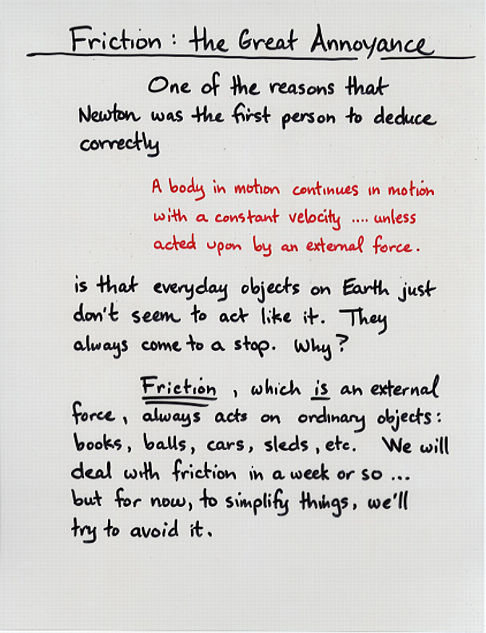 Friction : the Great Annoyance
One of the reasons that
Newton was the first person to deduce
correctly
A body in motion continues in motion
with a constant velocity .... unless
acted upon by an external force.
is that everyday objects on Earth just
don't seem to act like it. They
always come to a stop. Why?
Friction , which is an external
force, always acts on ordinary objects:
books, balls, cars, sleds, etc. We will
deal with friction in a week or so ...
but for now, to simplify things, we'll
try to avoid it.